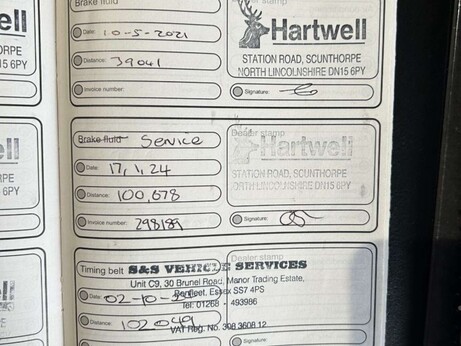 Brake fluid
Date: 10-5-2021
Distance: 39041
Invoice number:
Hartwell
STATION ROAD, SCUNTHORPE
NORTH LINCOLNSHIRE DN15 6PY
Signature:
ell
THORPE
15 6PY
Brake fluid Service
Date: 17,1,24
Distance: 100,678
Invoice number: 298189
Dealer stamp
Hartwell
STATION ROAD, SCUNTHORPE
NORTH LINCOLNSHIRE DN15 6PY
Signature:
ell
THORPE
5 6PY
Timing belt
Dealer stamp
S&S VEHICLE SERVICES
Unit C9, 30 Brunel Road, Manor Trading Estate,
Benfleet, Essex SS7 4PS
Tel: 01268 • 493986
VAT Reg. No. 398 3608 12
Date: 02-10-
Distance: 102049
ell